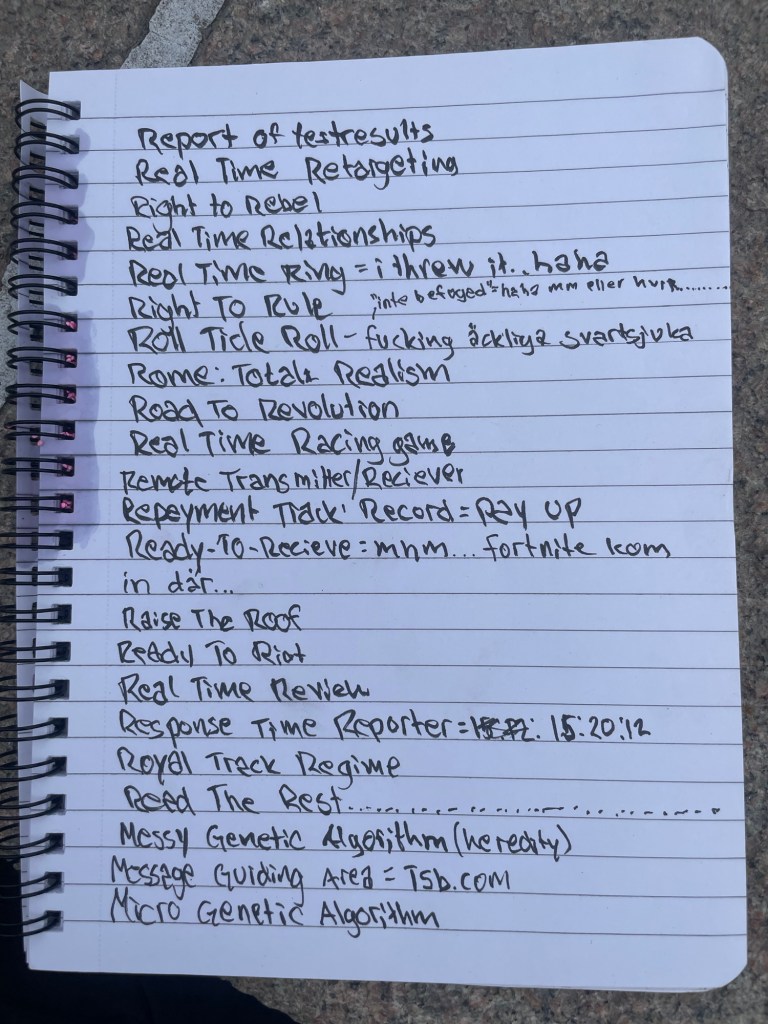 Report of testresults
Real Time Retargeting
Right to Rebel
Real Time Relationships
Real Time Ring = i threw it.. haha
Right To Rule "inte befoged" = haha mm eller hur.........
Roll Tide Roll - fucking äckliga svartsjuka
Rome: Total Realism
Road To Revolution
Real Time Racing game
Remote Transmitter/Reciever
Repayment Track Record = Pay UP
Ready-To-Recieve = mhm... fortnite kom
in där...
Raise The Roof
Ready To Riot
Real Time Review
Response Time Reporter = 15:20:12
Royal Track Regime
Read The Rest..............................
Messy Genetic Algorithm (heredity)
Message Guiding Area = Tsb.com
Micro Genetic Algorithm